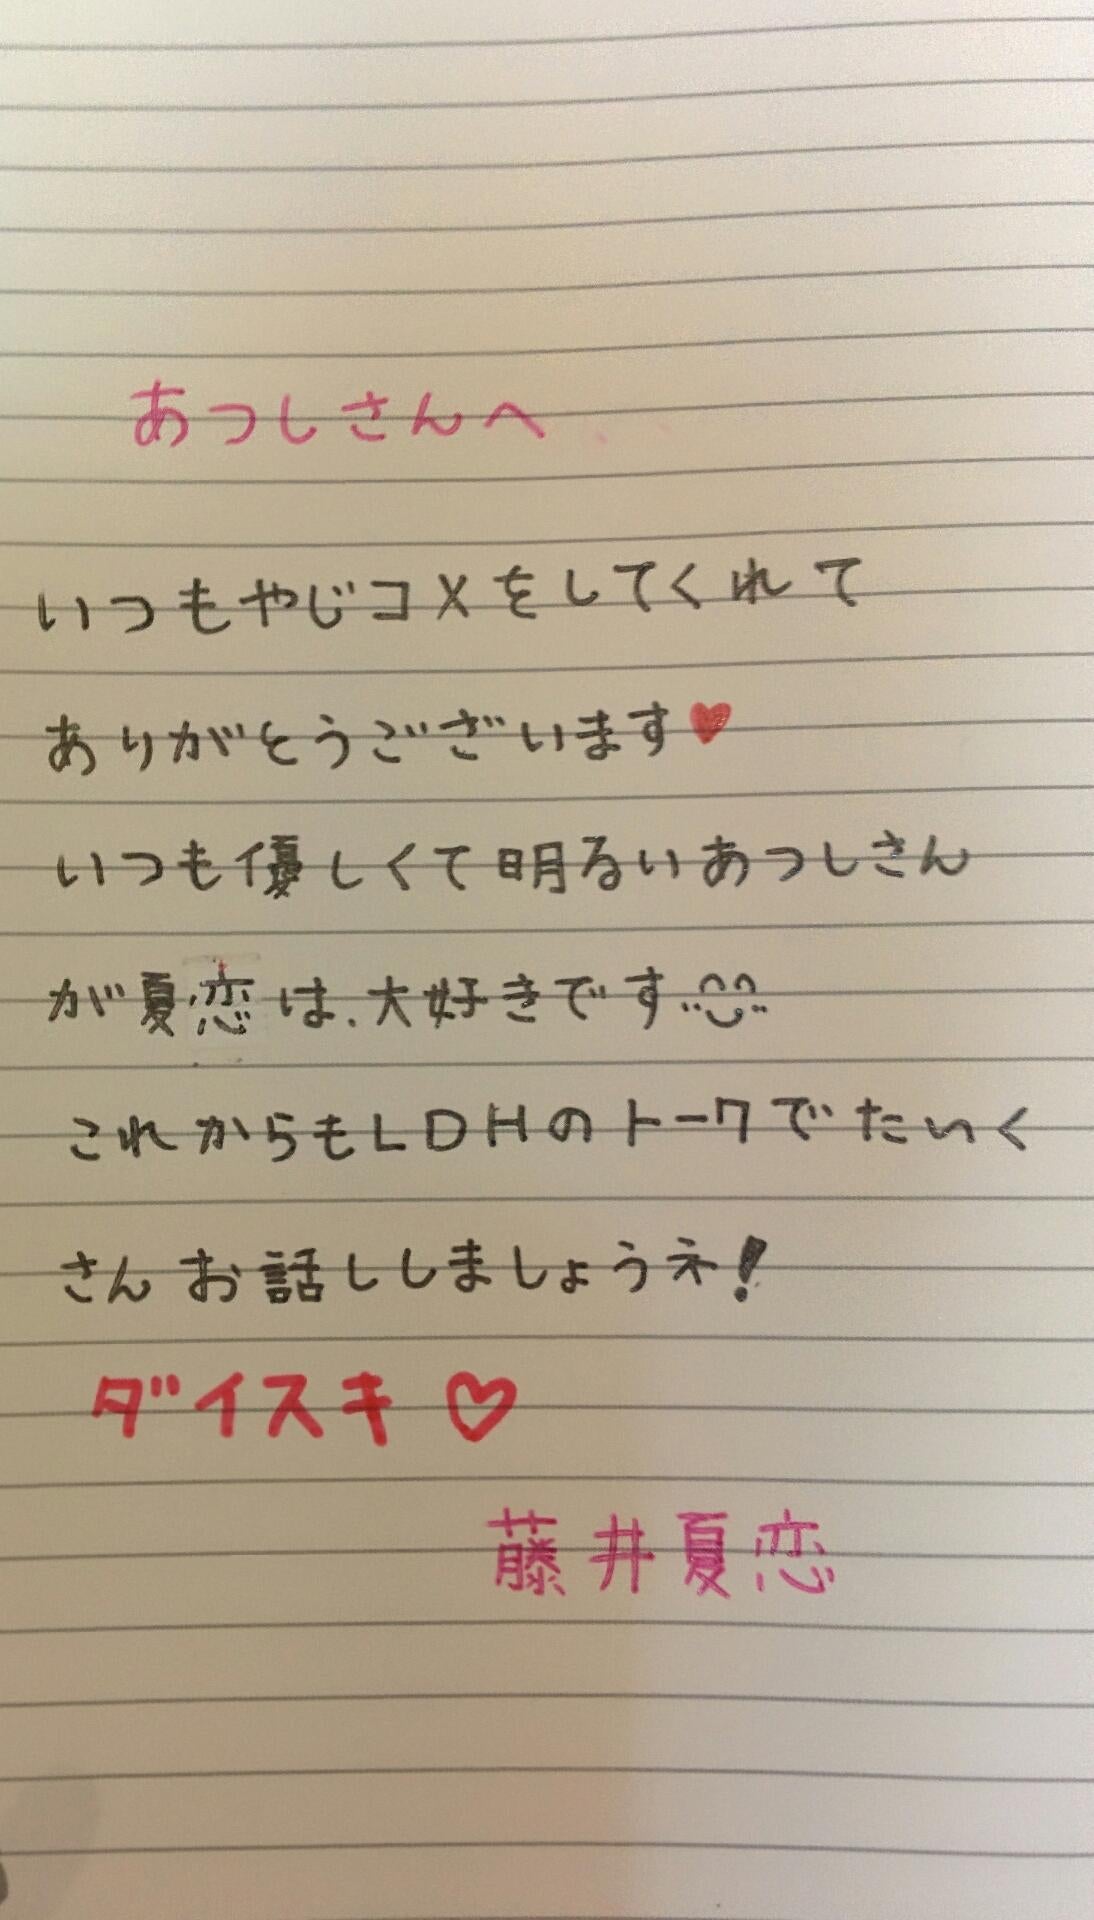 あつしさんへ
いつもやじコメをしてくれて
ありがとうございます♥
いつも優しくて明るいあつしさん
が夏恋は、大好きです
これからもLDHのトークでたいく
さんお話ししましょうネ!
ダイスキ♡
藤井夏恋